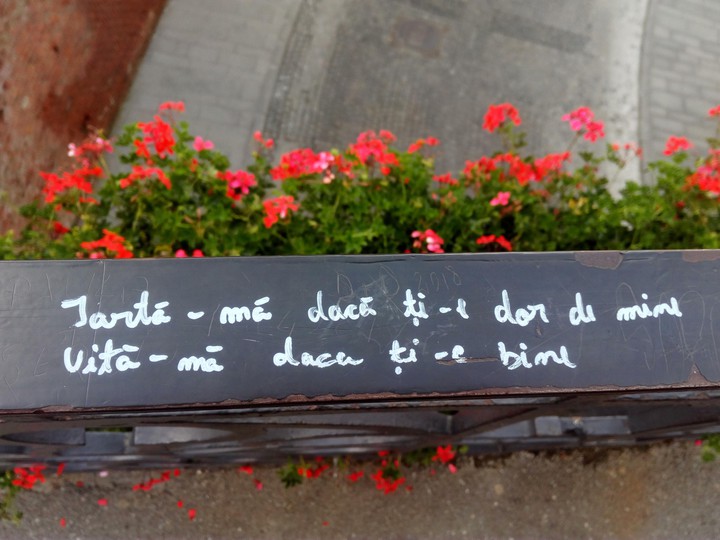 Iartă-mă dacă ți-e dor de mine
Uită-mă daca ți-e bine